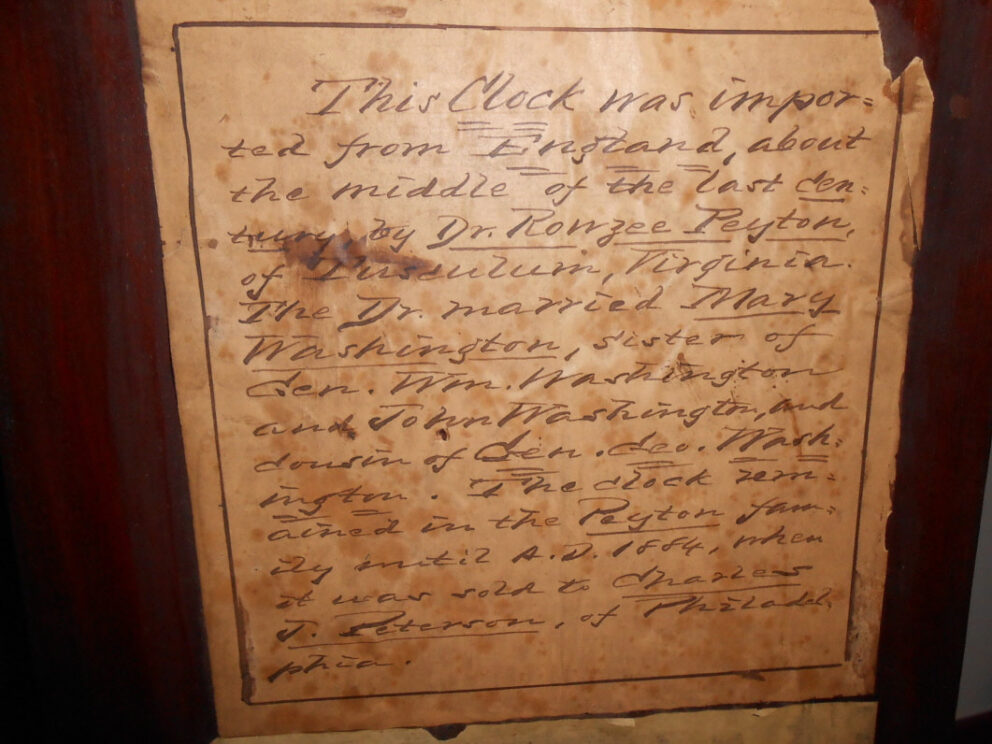 This Clock was impor=
ted from England, about
the middle of the last cen=
tury, by Dr. Rowzee Peyton,
of Tusculum, Virginia.
The Dr. married Mary
Washington, sister of
Gen. Wm. Washington
and John Washington, and
cousin of Gen. Geo. Wash=
ington. The clock rem=
ained in the Peyton fam=
ily until A.D. 1884, when
it was sold to Charles
J. Peterson, of Philadel
phia.